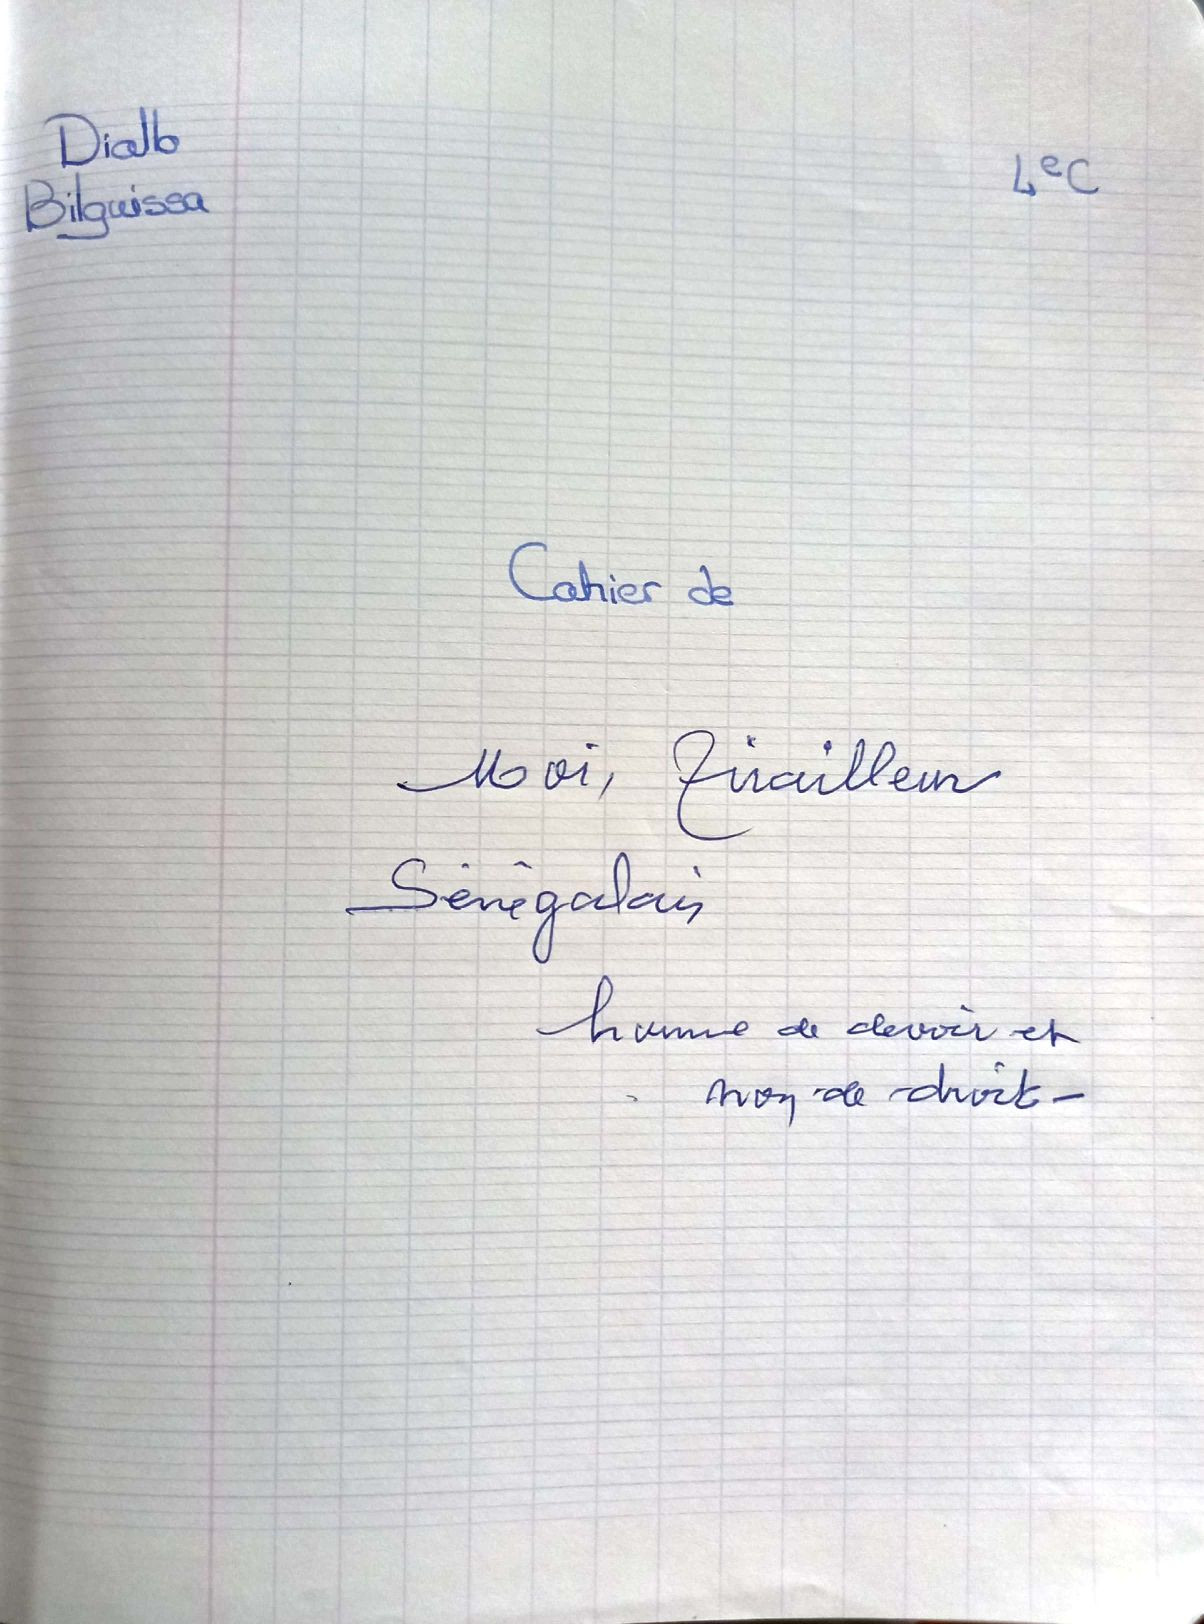 Diallo
Bilguissa
4eC
Cahier de
Moi, Tirailleur
Sénégalais
homme de devoir et
non de droit-